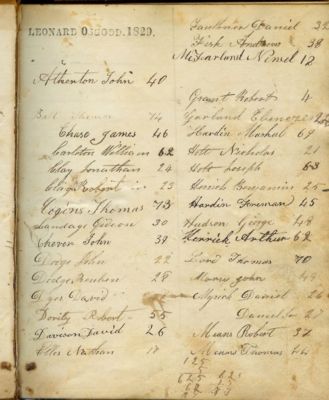 LEONARD OSGOOD. 1829.
Atherton John 40
74
Chase James 46
Carleton William 62
Clay Jonathan 24
Clay Robert 23
Cogins Thomas 73
Candage Gideon 30
Chever John 59
Dodge John 22
Dodge Reuben 28
Dyer David
Dority Robert 55
Davison David 26
Ellis Nathan
Faulkner Daniel 32
Fisk Andrews 38
McFarland Nimel 12
Grant Robert 4
Garland Ebenezer
Hardin Marshal 69
Holt Nicholas 21
Holt Joseph 63
Herrick Benjamin 25
Hardin Freeman 45
Hudson George 48
Herrick Arthur 62
Lord Thomas 70
Morris John 49
Myrick Daniel 26
Daniel 27
Means Robert 37
Means Thomas 44
125
5
625